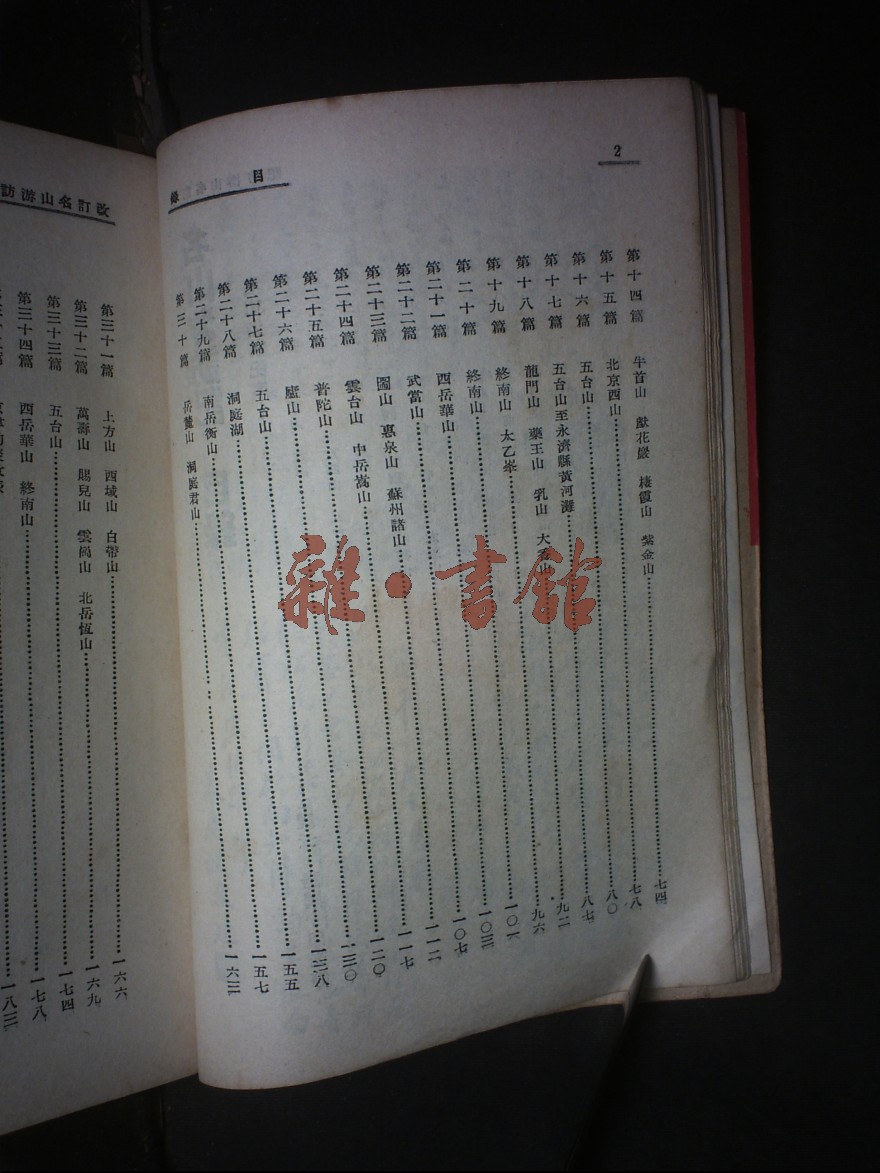 2
目錄
第十四篇 牛首山 獻花巖 棲霞山 紫金山……七四
第十五篇 北京西山……七八
第十六篇 五台山……八〇
第十七篇 五台山至永濟縣黃河灘……八七
第十八篇 龍門山 藥王山 乳山 大香山……九二
第十九篇 終南山 太乙峯……九六
第二十篇 終南山……一〇一
第二十一篇 西岳華山……一〇三
第二十二篇 武當山……一〇七
第二十三篇 圌山 惠泉山 蘇州諸山……一一二
第二十四篇 雲台山 中岳嵩山……一一七
第二十五篇 普陀山……一二〇
第二十六篇 廬山……一三〇
第二十七篇 五台山……一三八
第二十八篇 洞庭湖……一五五
第二十九篇 南岳衡山……一五七
第三十篇 岳麓山 洞庭君山……一六三
改訂名山游訪
第三十一篇 上方山 西域山 白帶山……一六六
第三十二篇 萬壽山 賜兒山 雲崗山 北岳恆山……一六九
第三十三篇 五台山……一七四
第三十四篇 西岳華山 終南山……一七八
一八三
雜·書館